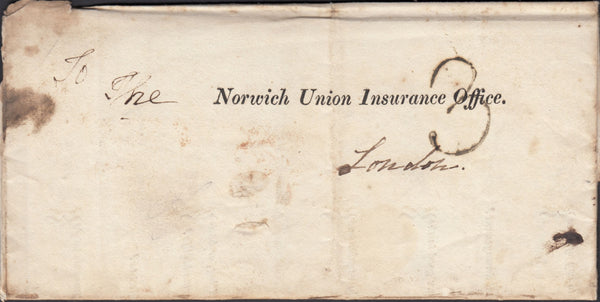 To
The Norwich Union Insurance Office.
3
London.